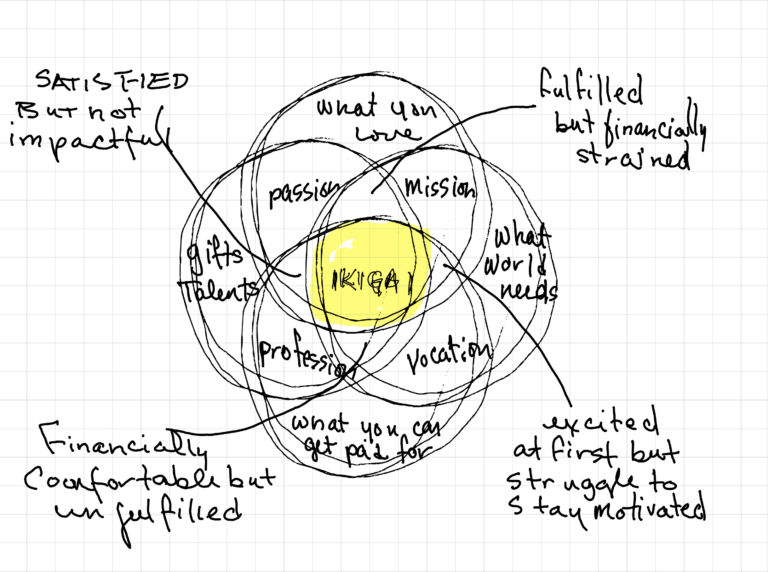 SATISFIED
But not
impactful
fulfilled
but financially
strained
what you
love
passion
mission
gifts
Talents
what
world
needs
IKIGAI
profession
vocation
what you can
get paid for
Financially
Comfortable but
unfulfilled
excited
at first but
struggle to
stay motivated